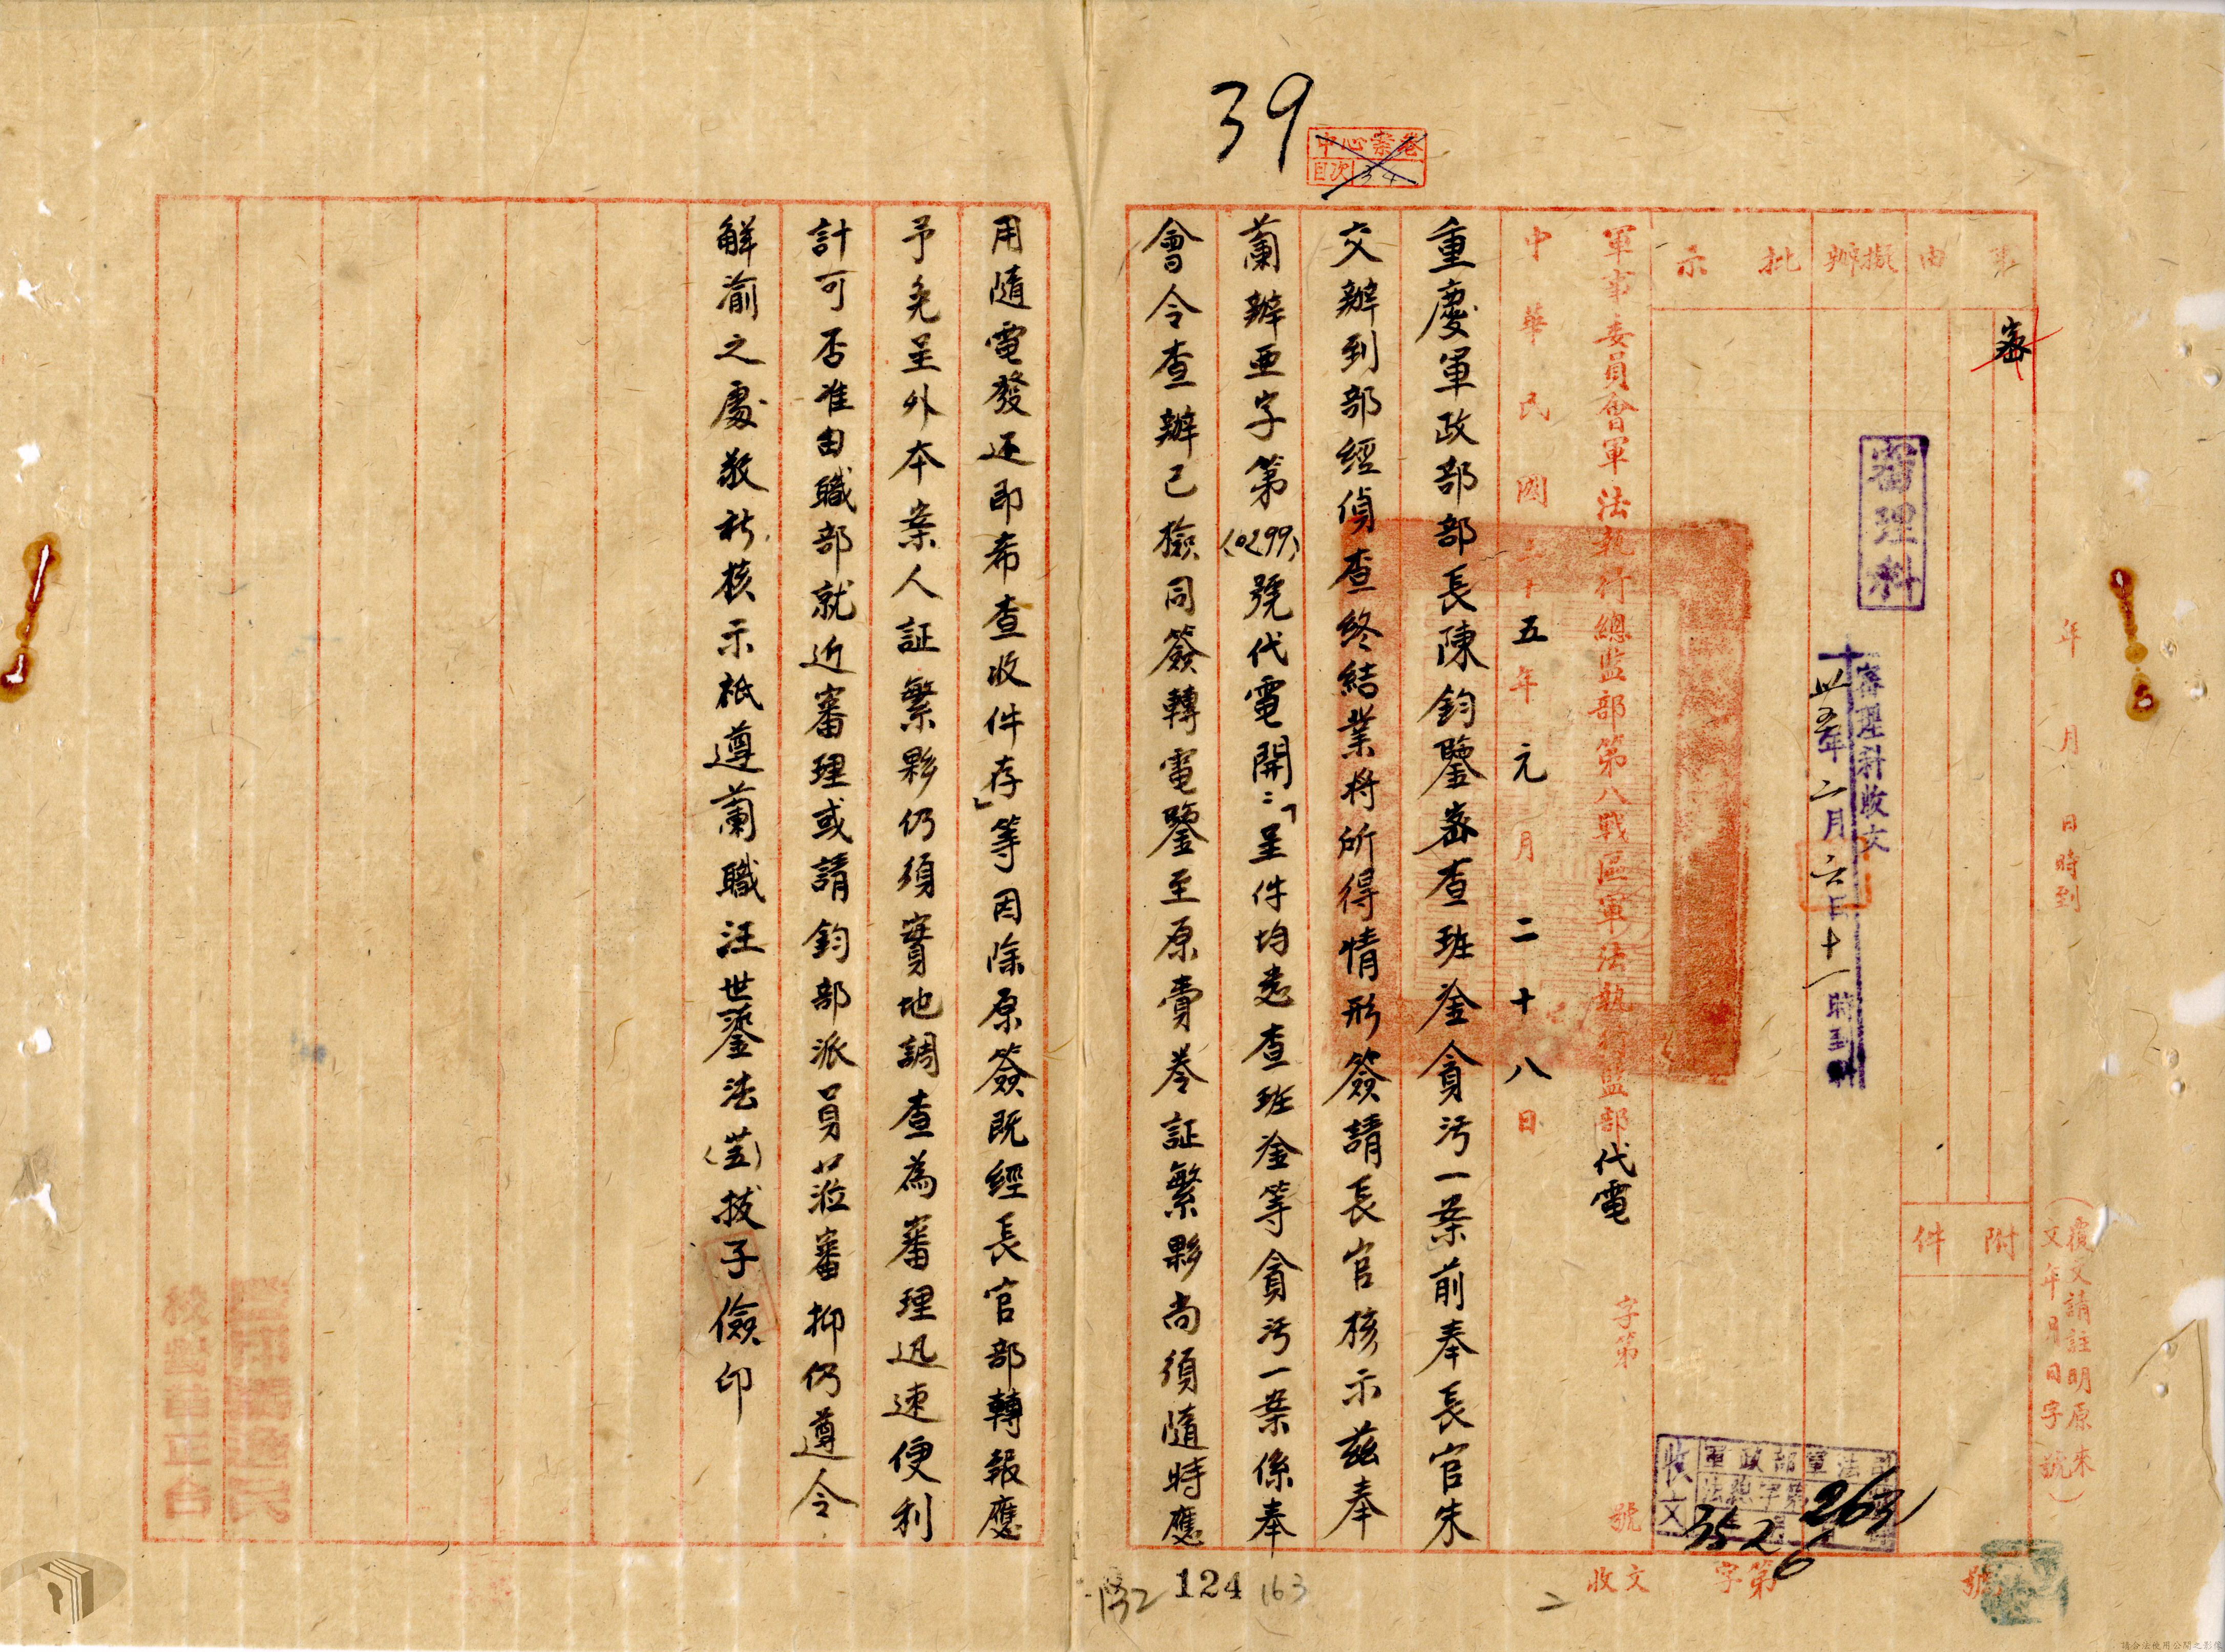 39
中心案卷
目次 34
年 月 日 時到
(覆文請註明原來
文年月日字號)
事由
擬辦
批示
附件
審
審理科
審理科收文
卅五年二月六日十一時到科
軍政部軍法司
收文
法總字第
263
352
6
軍事委員會軍法執行總監部第八戰區軍法執行監部代電 字第 號
中華民國三十五年元月二十八日
重慶軍政部部長陳鈞鑒案查班淦貪污一案前奉長官朱
交辦到部經偵查終結業將所得情形簽請長官核示茲奉
蘭辦亜字第(0299)號代電開:「呈件均悉查班淦等貪污一案係奉
會令查辦已檢同簽轉電鑒至原賫卷証繁夥尚須隨時應
用隨電發还即希查收件存」等因除原簽既經長官部轉報應
予免呈外本案人証繁夥仍須實地調查為審理迅速便利
計可否准由職部就近審理或請鈞部派員蒞審抑仍遵令
解渝之處敬祈核示祇遵蘭職汪世鎏法(荁)拔子儉印
收文 字第 號
二
132 124 163
請合法使用公開之影像